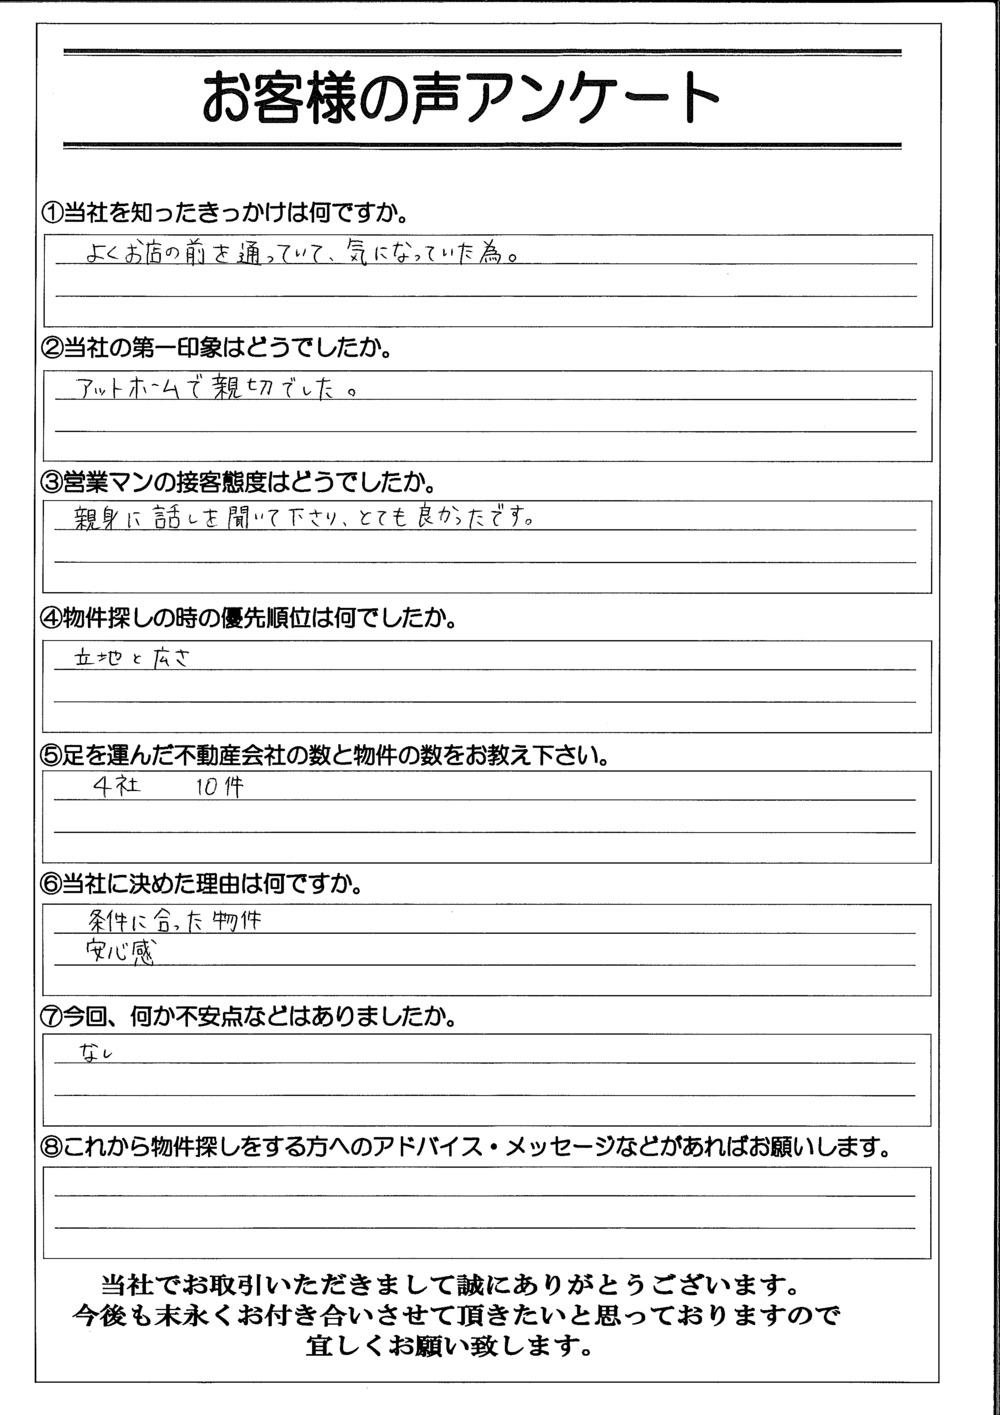 お客様の声アンケート
①当社を知ったきっかけは何ですか。
よくお店の前を通っていて、気になっていた為。
②当社の第一印象はどうでしたか。
アットホームで親切でした。
③営業マンの接客態度はどうでしたか。
親身に話しを聞いて下さり、とても良かったです。
④物件探しの時の優先順位は何でしたか。
立地と広さ
⑤足を運んだ不動産会社の数と物件の数をお教え下さい。
4社 10件
⑥当社に決めた理由は何ですか。
条件に合った物件
安心感
⑦今回、何か不安点などはありましたか。
なし
⑧これから物件探しをする方へのアドバイス・メッセージなどがあればお願いします。
当社でお取引いただきまして誠にありがとうございます。
今後も末永くお付き合いさせて頂きたいと思っておりますので
宜しくお願い致します。